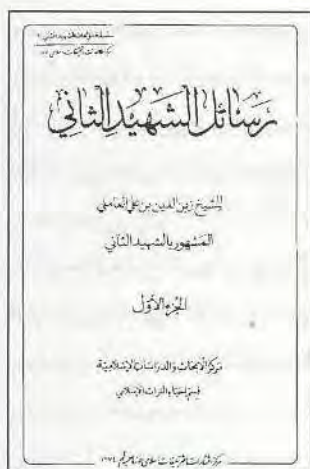 رسائل الشهيد الثاني
للشيخ زين الدين بن علي العاملي
المشهور بالشهيد الثاني
الجزء الأول
مركز الأبحاث والدراسات الإسلامية
قسم إحياء التراث الإسلامي